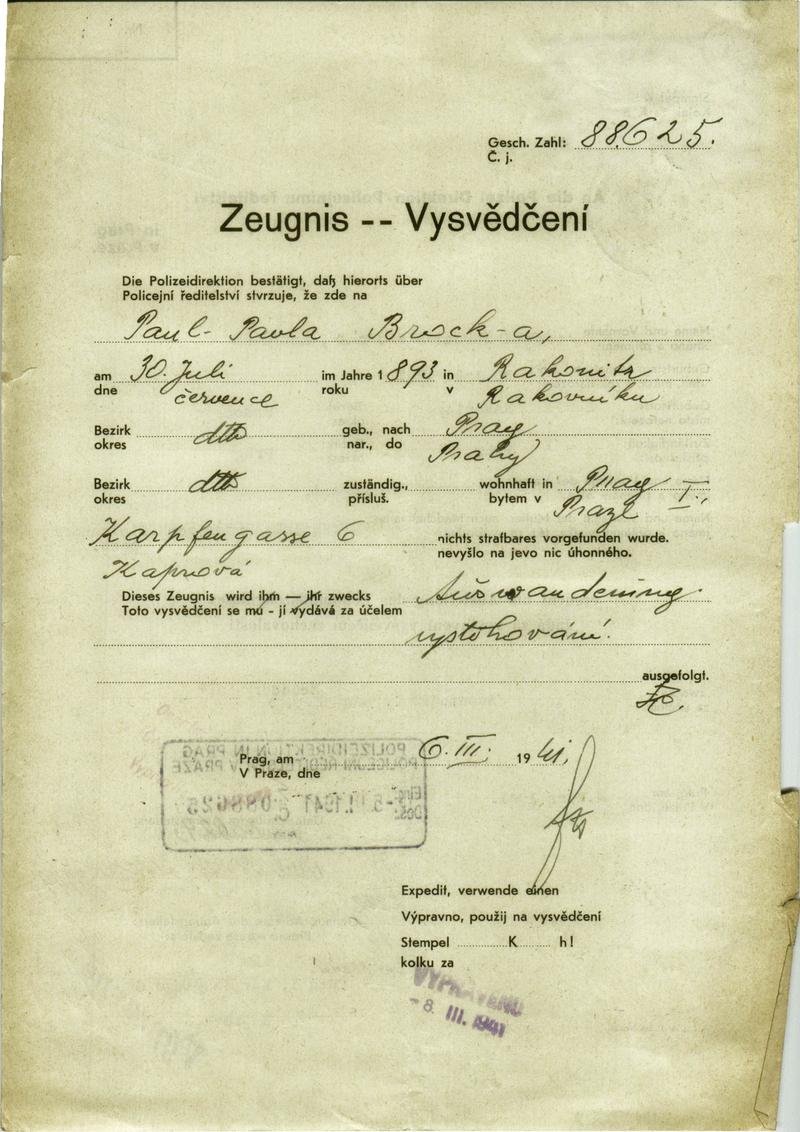 Gesch. Zahl: 88625.
Č. j.
Zeugnis -- Vysvědčení
Die Polizeidirektion bestätigt, daß hierorts über
Policejní ředitelství stvrzuje, že zde na
Paul- Pavla Brock-a,
am 30. Juli im Jahre 1893 in Rakonitz
dne července roku v Rakovníku
Bezirk dtto geb., nach Prag
okres nar., do Prahy
Bezirk dtto zuständig., wohnhaft in Prag I.,
okres přísluš. bytem v Praze
Karpfengasse 6 nichts strafbares vorgefunden wurde.
Kaprová nevyšlo na jevo nic úhonného.
Dieses Zeugnis wird ihm — ihr zwecks Auswanderung.
Toto vysvědčení se mu - jí vydává za účelem
vystěhování.
ausgefolgt.
Prag, am 6. III. 1941.
V Praze, dne
POLIZEIDIREKTION IN PRAG
POLICEJNÍ ŘEDITELSTVÍ V PRAZE
Eing.
Doš. -5. I. 1941 Č. 088625
Expedit, verwende einen
Výpravno, použij na vysvědčení
Stempel K h!
kolku za
VYPRAVENO
-8. III. 1941